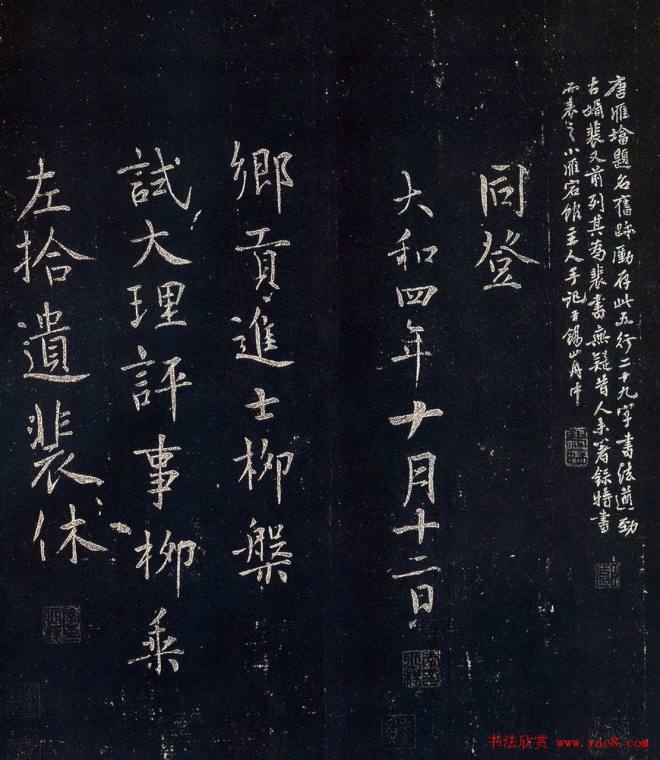 左拾遺裴休
試大理評事柳乘
鄉貢進士柳槃
大和四年十月十二日
同登
唐雁墖題名舊跡存此五行二十九字書法遒勁
古媚裴又前列其為裴書無疑昔人未著錄特書
而表之小雁宕館主人手記于錫山舟中
书法欣赏 www.yac8.com